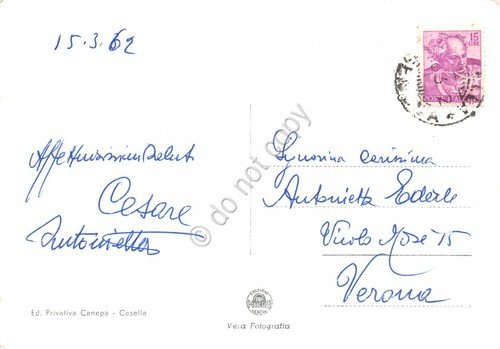 15.3.62
15
LIRE
Affettuosissimi saluti
Cesare
Antonietta
Signorina carissima
Antonietta Ederle
Vicolo Mosè 15
Verona
Ed. Privativa Canepa - Casella
Vera Fotografia
© do not copy